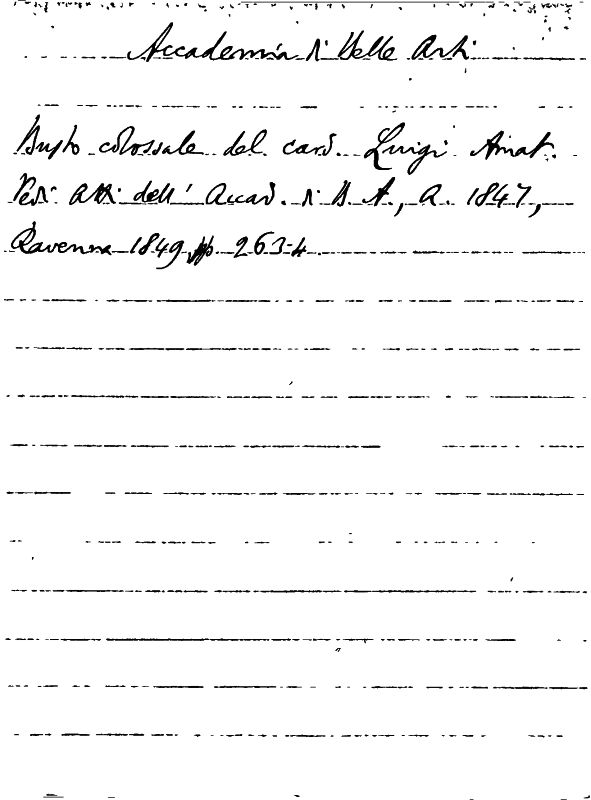 Accademia di Belle Arti
Busto colossale del card. Luigi Amat.
Vedi Atti dell' Accad. di B. A., A. 1847,
Ravenna 1849 pp 263-4.